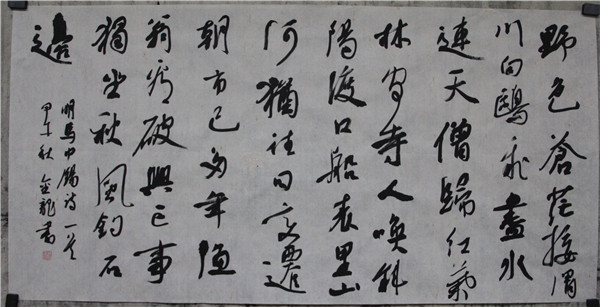 野色蒼茫接渭
川白鷗飛盡水
連天僧歸紅葉
林間寺人喚斜
陽渡口船表里山
河猶往日變遷
朝市已多年漁
翁看破興亡事
獨坐秋風釣石
邊
明馬中錫詩一首
甲午秋金龍書